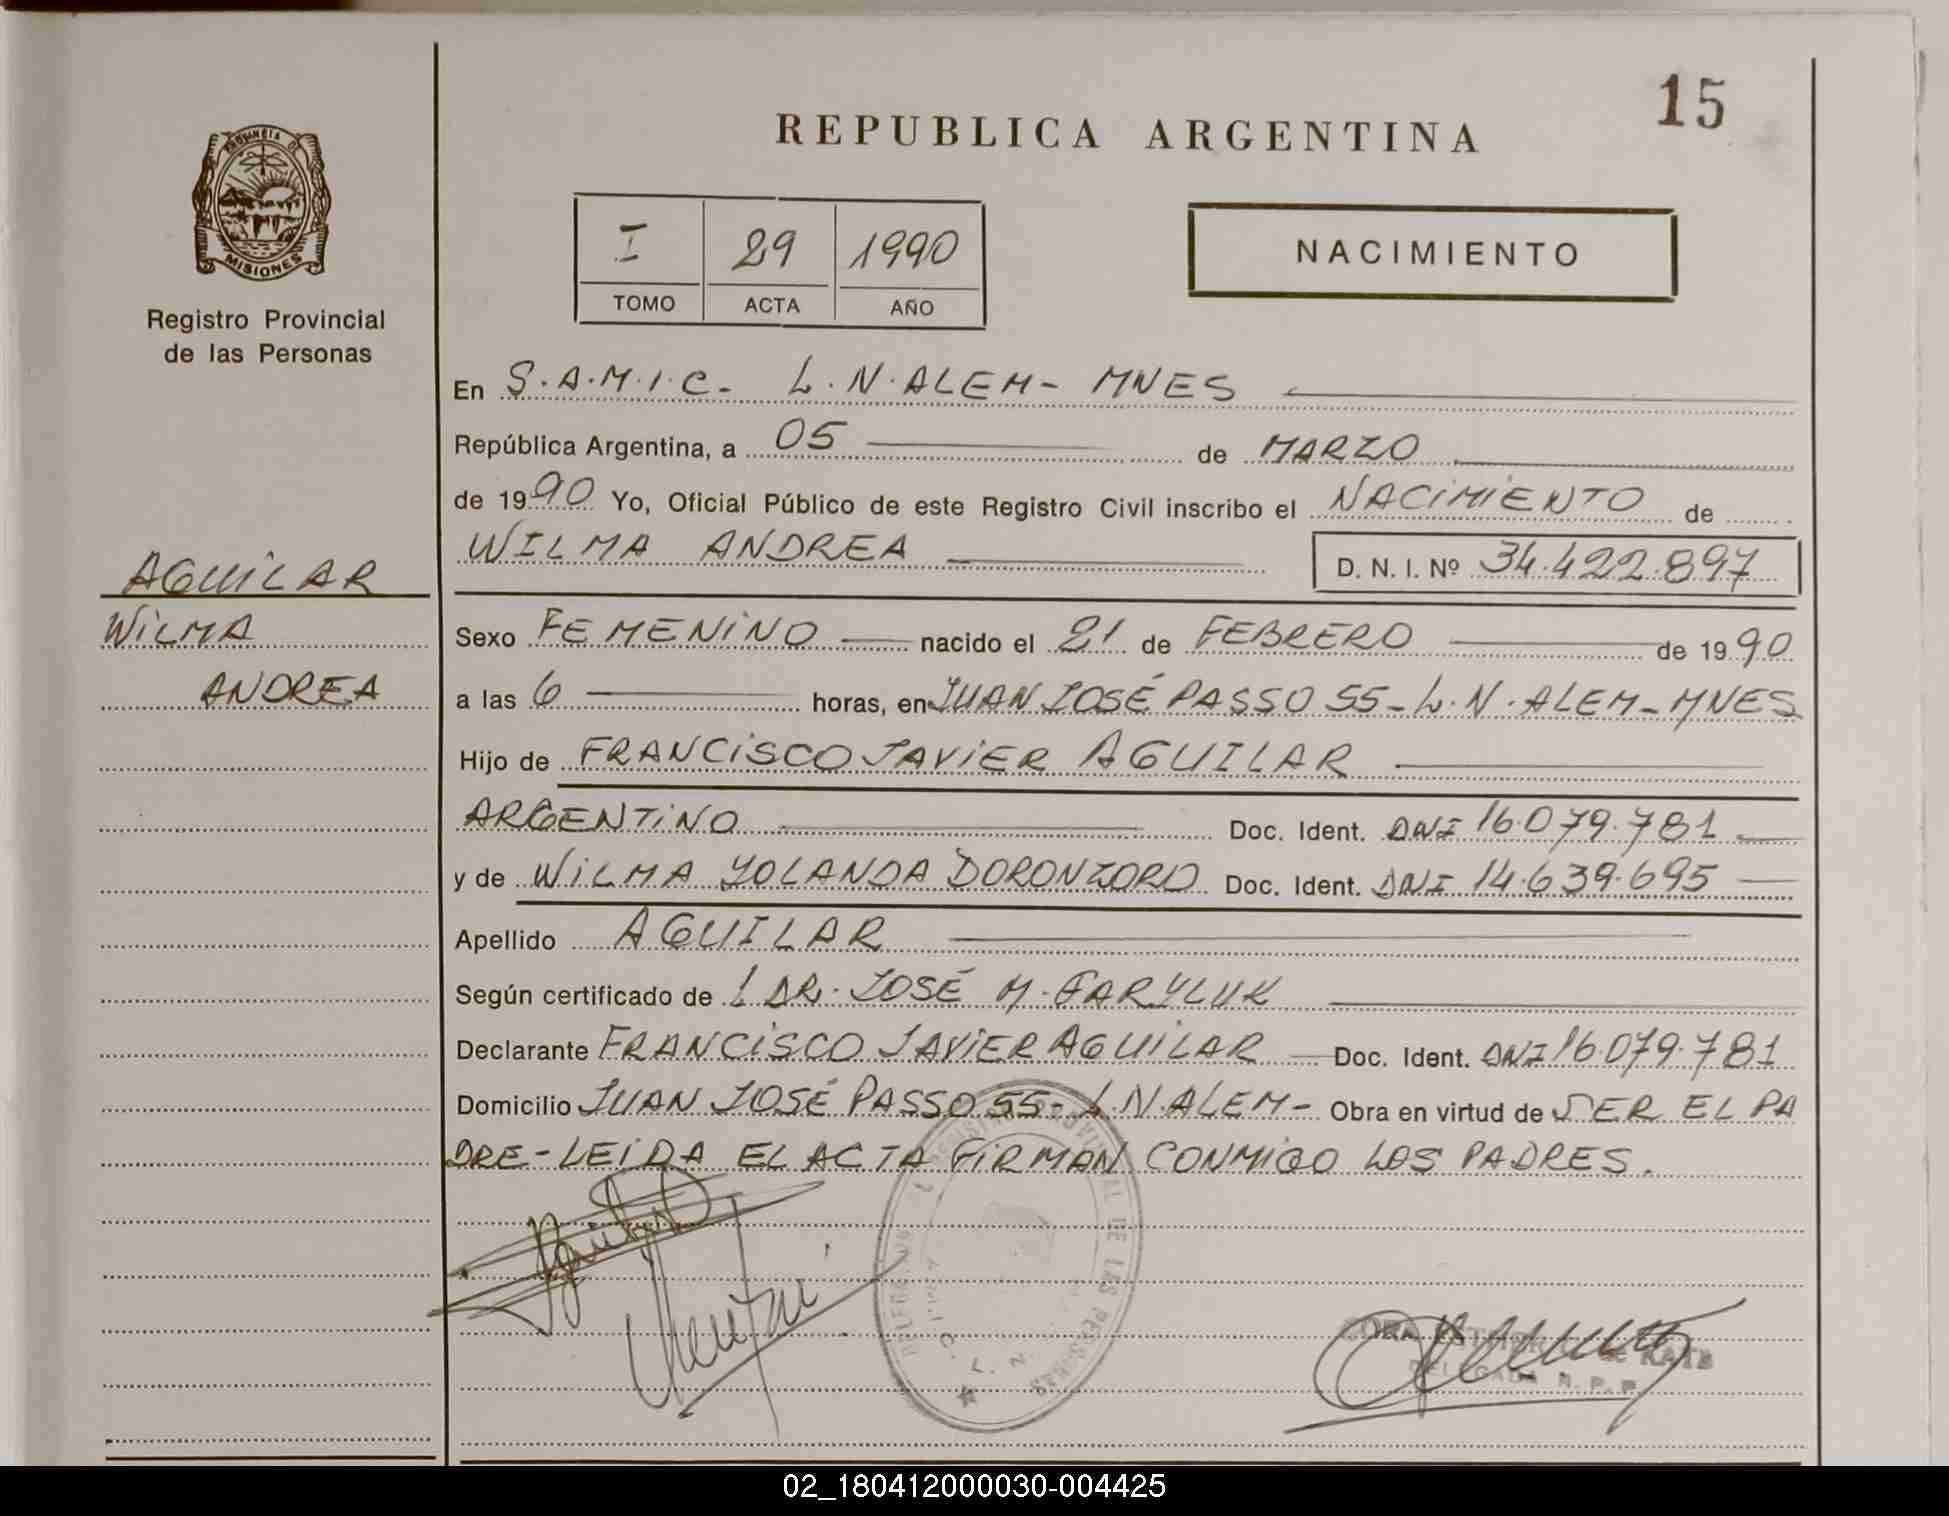 15
REPUBLICA ARGENTINA
PROVINCIA D
MISIONES
Registro Provincial
de las Personas
I 29 1990
TOMO ACTA AÑO
NACIMIENTO
En S.A.M.I.C- L.N.ALEM- MNES
República Argentina, a 05 de MARZO
de 1990 Yo, Oficial Público de este Registro Civil inscribo el NACIMIENTO de
WILMA ANDREA D. N. I. Nº 34.422.897
AGUILAR
WILMA
ANDREA
Sexo FEMENINO nacido el 21 de FEBRERO de 1990
a las 6 horas, en JUAN JOSÉ PASSO 55- L.N.ALEM-MNES
Hijo de FRANCISCO JAVIER AGUILAR
ARGENTINO Doc. Ident. DNI 16.079.781
y de WILMA YOLANDA DORONZORO Doc. Ident. DNI 14.639.695
Apellido AGUILAR
Según certificado de L DR. JOSÉ M. GARYLUK
Declarante FRANCISCO JAVIER AGUILAR Doc. Ident. DNI 16.079.781
Domicilio JUAN JOSÉ PASSO 55- L.N.ALEM- Obra en virtud de SER EL PA
DRE-LEIDA EL ACTA FIRMAN CONMIGO LOS PADRES.
DE LAS PERSONAS
DELEGADA R. P. P.
02_180412000030-004425